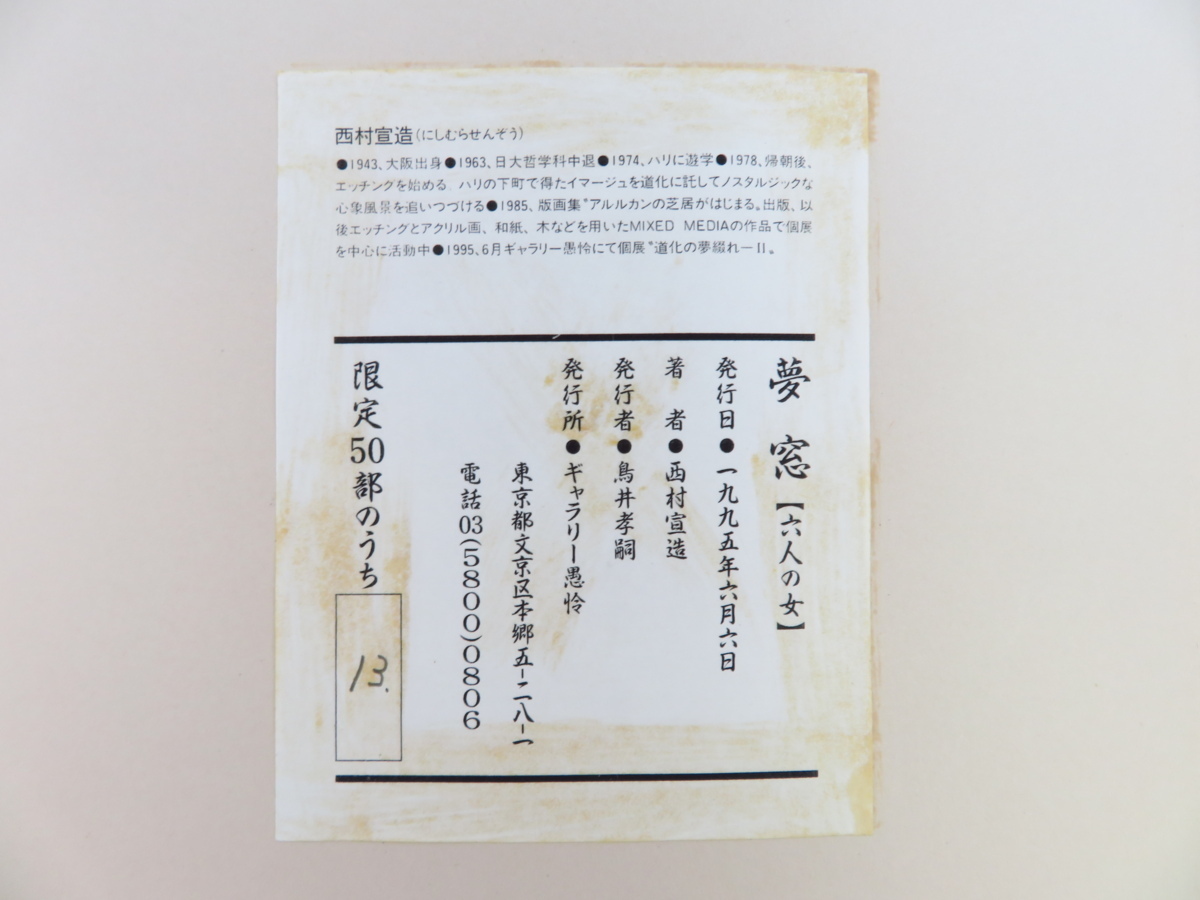 西村宣造(にしむらせんぞう)
●1943、大阪出身●1963、日大哲学科中退●1974、ハリに遊学●1978、帰朝後、
エッチングを始める ハリの下町で得たイマージュを道化に託してノスタルジックな
心象風景を追いつづける●1985、版画集〝アルルカンの芝居がはじまる。出版、以
後エッチングとアクリル画、和紙、木などを用いたMIXED MEDIAの作品で個展
を中心に活動中●1995、6月ギャラリー愚怜にて個展〝道化の夢綴れーII。
夢窓【六人の女】
発行日●一九九五年六月六日
著者●西村宣造
発行者●鳥井孝嗣
発行所●ギャラリー愚怜
東京都文京区本郷五-二八-一
電話03(5800)0806
限定50部のうち
13.